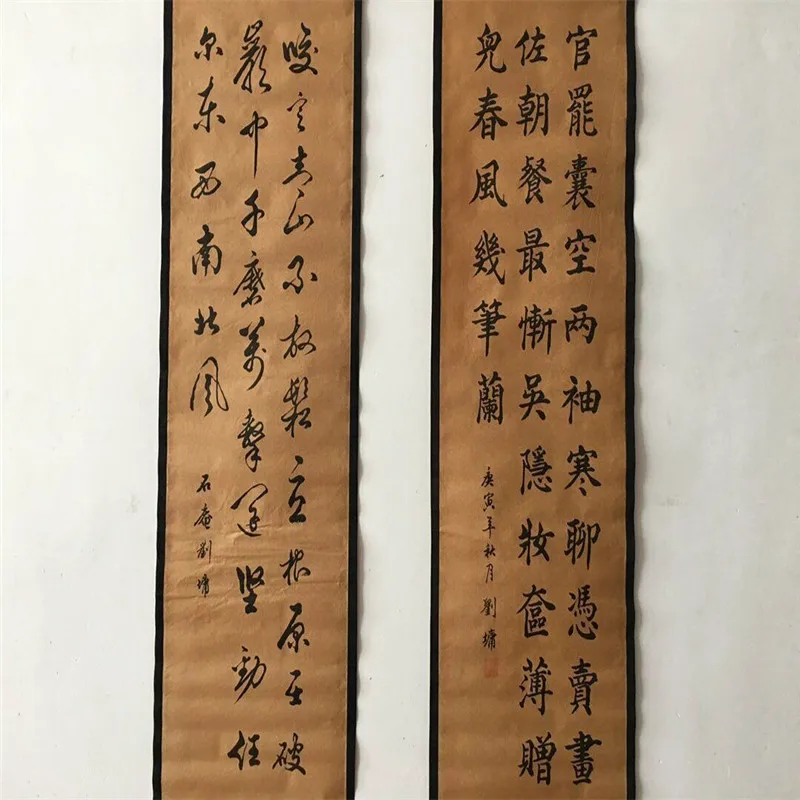 官罷囊空两袖寒聊憑賣畫
佐朝餐最慚吳隱妝奩薄贈
兒春風幾筆蘭
庚寅年秋月劉墉
咬定青山不放鬆立根原在破
巖中千磨萬擊還坚勁任
尔東西南北風
石庵劉墉